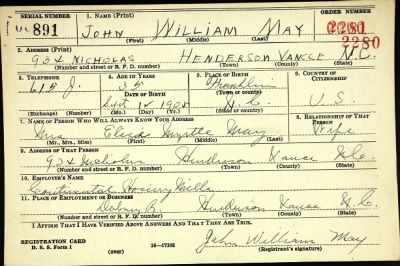 SERIAL NUMBER 1. NAME (Print) ORDER NUMBER
891 JOHN WILLIAM MAY 2280
(First) (Middle) (Last) 2280
2. ADDRESS (Print)
934 NICHOLAS HENDERSON VANCE N.C.
(Number and street or R. F. D. number) (Town) (County) (State)
3. TELEPHONE 4. AGE IN YEARS 5. PLACE OF BIRTH 6. COUNTRY OF CITIZENSHIP
618 J. 35 Franklin
DATE OF BIRTH (Town or county)
Sept 12 1905 N.C. U.S.
(Exchange) (Number) (Mo.) (Day) (Yr.) (State or country)
7. NAME OF PERSON WHO WILL ALWAYS KNOW YOUR ADDRESS 8. RELATIONSHIP OF THAT PERSON
Mrs Myrtle May Wife
(Mr., Mrs., Miss) (First) (Middle) (Last)
9. ADDRESS OF THAT PERSON
934 Nicholas Henderson Vance N.C.
(Number and street or R. F. D. number) (Town) (County) (State)
10. EMPLOYER'S NAME
Continental Hosiery Mills
11. PLACE OF EMPLOYMENT OR BUSINESS
Dabney R. Henderson Vance N.C.
(Number and street or R. F. D. number) (Town) (County) (State)
I AFFIRM THAT I HAVE VERIFIED ABOVE ANSWERS AND THAT THEY ARE TRUE.
REGISTRATION CARD John William May
D. S. S. Form 1 (over) 16-17105 (Registrant's signature)